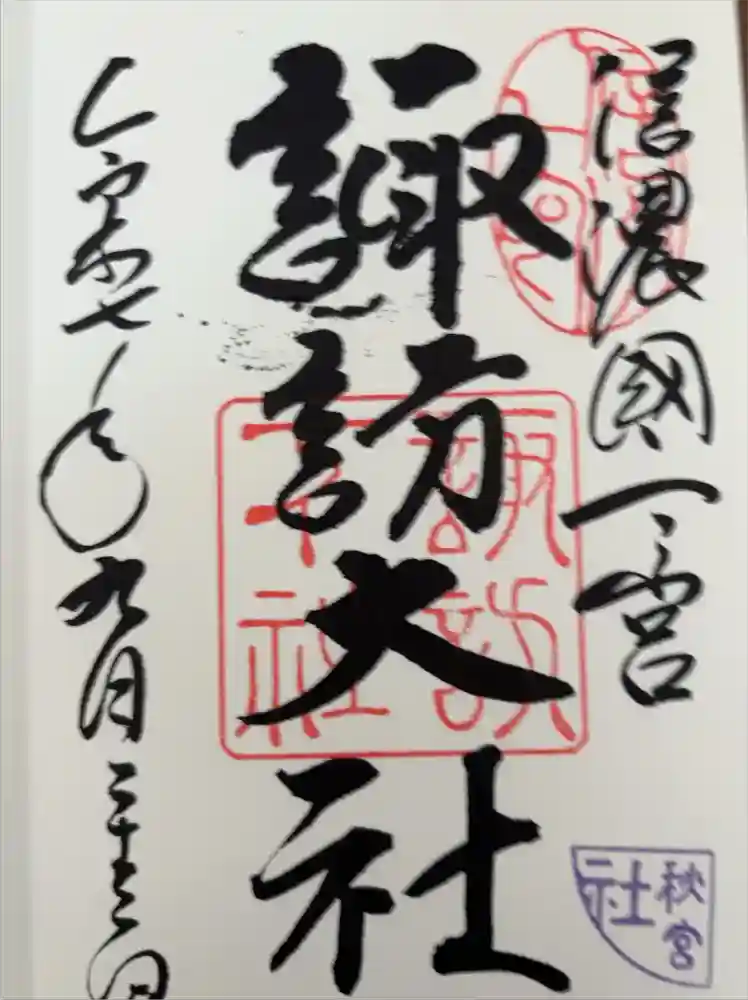 信濃國一宮
諏訪大社
令和七年九月二十三日
諏訪
大社
秋宮
社